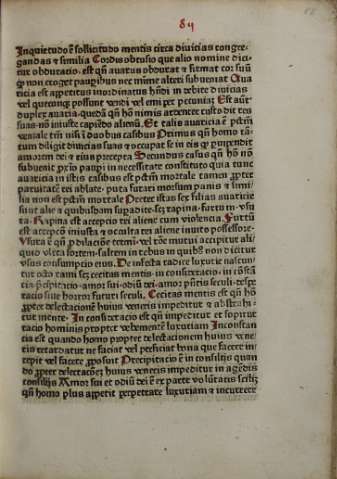 84
Inquietudo ē sollicitudo mentis circa diuicias congre-
gandas & similia Cordis obtusio que alio nomine dici-
tur obduratio. est qn̄ auarus obdurat & firmat cor suū
qp non eroget pauperibus nec minime alteri subueniat Aua
ricia est appetitus inordinatus hndi in orbe diuicias
vel quecunqp possunt vendi vel emi per pecuniā Est aut
duplex auaria. quedā qn̄ hō nimis ardenter custodit res
suas. nō iniuste capiēdo alienū. Et talis auaricia ē pctm
veniale tm̄ nisi ī duobus casibus Primus qn̄ homo tā-
tum diligit diuicias suas & occupat se in eis qp parpendit
amorem dei & eius precepta Secundus casus qn̄ hō nō
subuenit pximo paupi in necessitate constituto quia tunc
auaricia in istis casibus est pctm mortale tamen propter
paruitatem rei ablate. puta furari morsum panis & simi-
lia non est pctm mortale Preter istas sex filias auaricie
sunt alie & quibusdam supadite. sez rapina. furtum. vsu-
ra. Rapina est accepcio rei aliene cum violencia. Furtū
est accepcō iniusta & occulta rei aliene inuito possessore.
Vsura ē qn̄ p dilacionē termi. vel rōne mutui accipitur ali-
quid vltra sortem. saltem in rebus in quibus non dicitur
vsus consumpcio eius. De infecta radice luxurie nascun-
tur octo rami sez cecitas mentis. in consideracio. in cōstā
cia. pcipitacio. amor sui. odiū dei. amor pntis seculi. despe
racio siue horror futuri seculi. Cecitas mentis est qn̄ hō
propter delectacionem huius veneris impeditur & abstrahi-
tur mente. In consideracio est qn̄ impeditur et sopitur
racio hominis propter vehementem luxuriam Inconstan
cia est quando homo propter delectacionem huius vene-
ris retardatur ne faciat vel perficiat bona que facere in-
cepit vel facere proposuit Precipitacio ē in consilijs quan
do propter delectacionem huius veneris impeditur in agēdis
consilijs Amor sui et odiū dei ē ex parte volūtatis scilicz
qn̄ homo plus appetit perpetrare luxuriam & incurrere